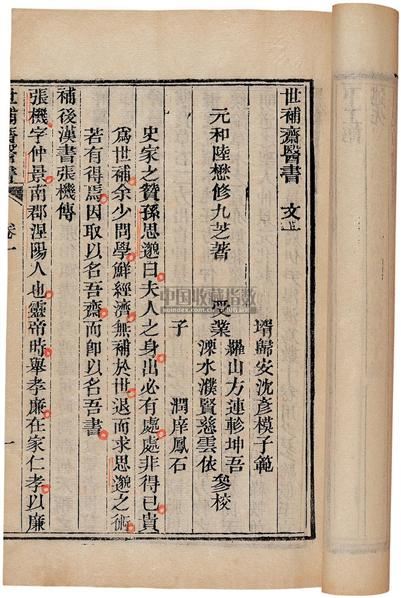 世補齋醫書 文一
壻歸安沈彥模子範
元和陸懋修九芝著 受業 羅山方連軫坤吾 參校
溧水濮賢慈雲依
子 潤庠鳳石
史家之贊孫思邈曰夫人之身出必有處處非得已貴
爲世補余少問學鮮經濟無補於世退而求思邈之術
若有得焉因取以名吾齋而卽以名吾書
補後漢書張機傳
張機字仲景南郡涅陽人也靈帝時舉孝廉在家仁孝以廉
世補齋醫書 卷一 一
中国收藏指数